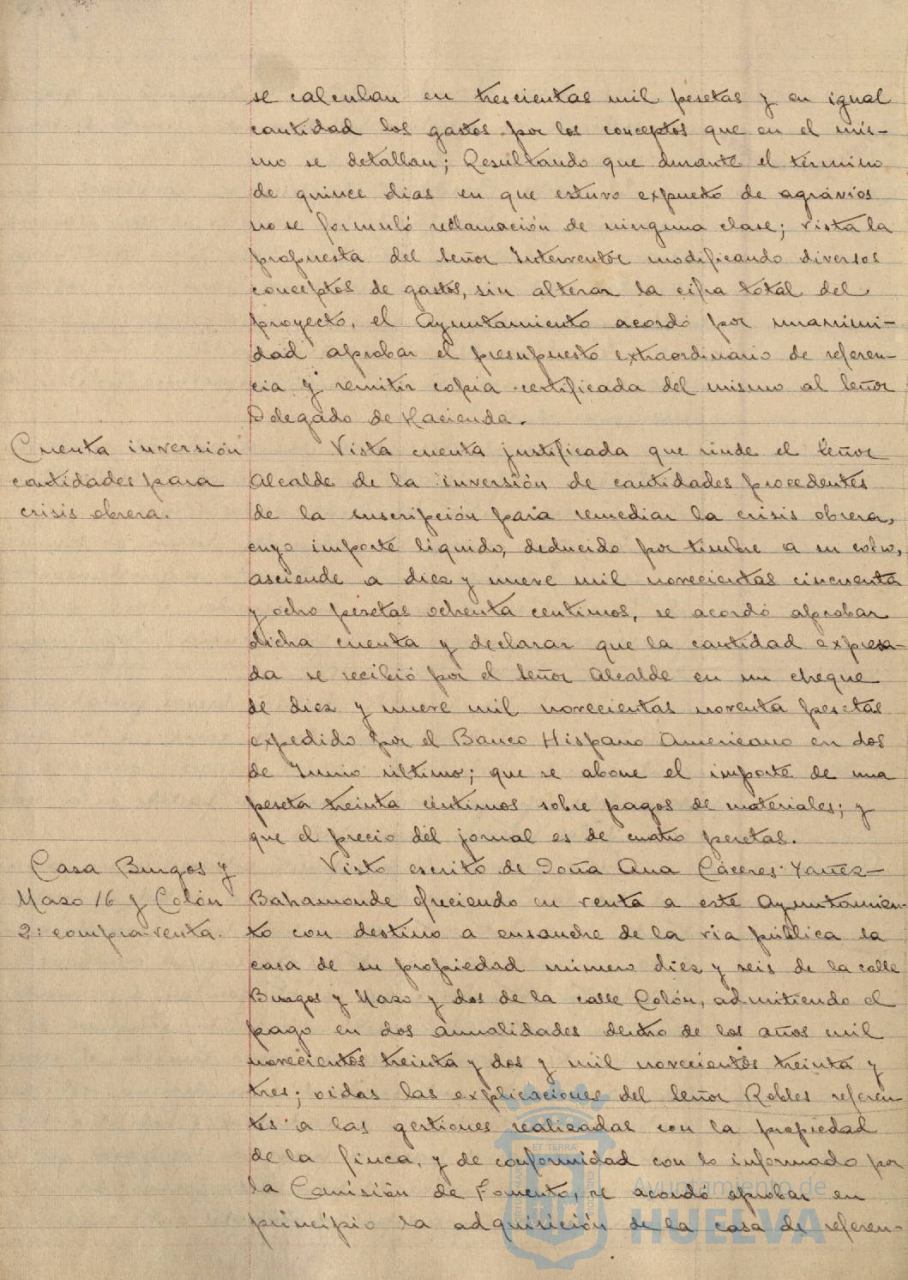 se calculan en trescientas mil pesetas y en igual
cantidad los gastos por los conceptos que en el mis-
mo se detallan; Resultando que durante el término
de quince dias en que estuvo expuesto de agravios
no se formuló reclamación de ninguna clase; vista la
propuesta del Señor Interventor modificando diversos
conceptos de gastos, sin alterar la cifra total del
proyecto, el Ayuntamiento acordó por unanimi-
dad aprobar el presupuesto extraordinario de referen-
cia y remitir copia certificada del mismo al Señor
Delegado de Hacienda.
Cuenta inversión
cantidades para
crisis obrera.
Vista cuenta justificada que rinde el Señor
Alcalde de la inversión de cantidades procedentes
de la suscripción para remediar la crisis obrera,
cuyo importe líquido, deducido por timbre a su cobro,
asciende a diez y nueve mil novecientas cincuenta
y ocho pesetas ochenta centimos, se acordó aprobar
dicha cuenta y declarar que la cantidad expresa-
da se recibió por el Señor Alcalde en un cheque
de diez y nueve mil novecientas noventa pesetas
expedido por el Banco Hispano Americano en dos
de Junio último; que se abone el importe de una
peseta treinta céntimos sobre pagos de materiales; y
que el precio del jornal es de cuatro pesetas.
Casa Burgos y
Mazo 16 y Colón
2: compra-venta.
Visto escrito de Doña Ana Cáceres-Yañez-
Bahamonde ofreciendo en venta a este Ayuntamien-
to con destino a ensanche de la via pública la
casa de su propiedad número diez y seis de la calle
Burgos y Mazo y dos de la calle Colón, admitiendo el
pago en dos anualidades dentro de los años mil
novecientos treinta y dos y mil novecientos treinta y
tres; oidas las explicaciones del Señor Robles referen-
tes a las gestiones realizadas con la propiedad
de la finca, y de conformidad con lo informado por
la Comisión de Fomento, se acordó aprobar en
principio la adquisición de la casa de referen-
Ayuntamiento de
HUELVA